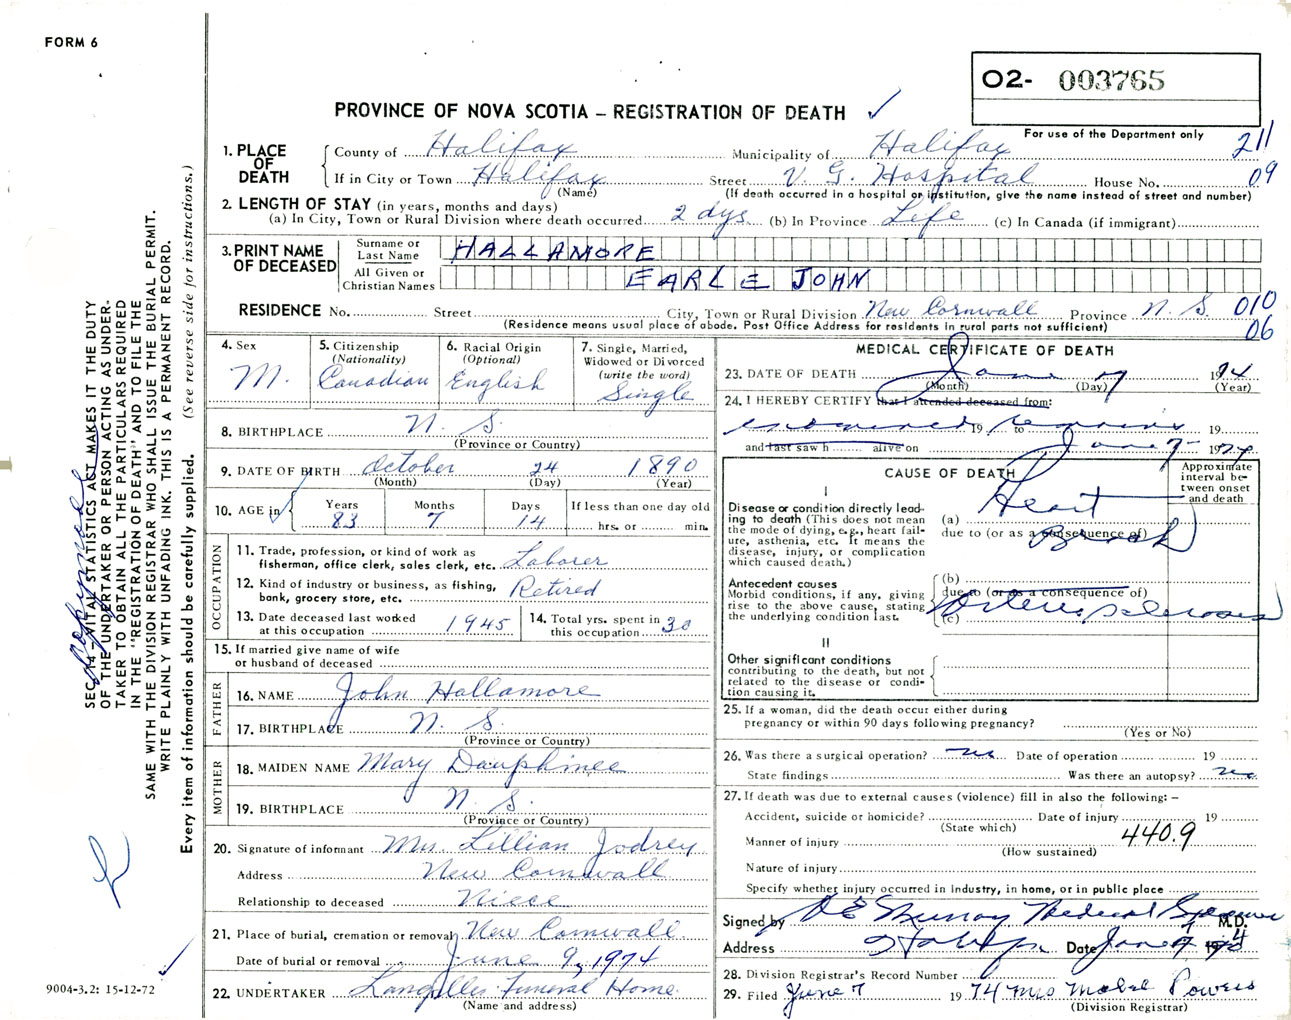 FORM 6
O2- 003765
PROVINCE OF NOVA SCOTIA – REGISTRATION OF DEATH
For use of the Department only
211
09
1. PLACE OF DEATH
County of Halifax Municipality of Halifax
If in City or Town Halifax Street V. G. Hospital House No.
(Name) (If death occurred in a hospital or institution, give the name instead of street and number)
2. LENGTH OF STAY (in years, months and days)
(a) In City, Town or Rural Division where death occurred 2 dys (b) In Province Life (c) In Canada (if immigrant)
3. PRINT NAME OF DECEASED
Surname or Last Name HALLAMORE
All Given or Christian Names EARLE JOHN
RESIDENCE No. Street City, Town or Rural Division New Cornwall Province N. S. 010
06
(Residence means usual place of abode. Post Office Address for residents in rural parts not sufficient)
4. Sex M.
5. Citizenship (Nationality) Canadian
6. Racial Origin (Optional) English
7. Single, Married, Widowed or Divorced (write the word) Single
8. BIRTHPLACE N. S.
(Province or Country)
9. DATE OF BIRTH October 24 1890
(Month) (Day) (Year)
10. AGE in Years 83 Months 7 Days 14 If less than one day old hrs. or min.
OCCUPATION
11. Trade, profession, or kind of work as fisherman, office clerk, sales clerk, etc. Laborer
12. Kind of industry or business, as fishing, bank, grocery store, etc. Retired
13. Date deceased last worked at this occupation 1945
14. Total yrs. spent in this occupation 30
15. If married give name of wife or husband of deceased
FATHER
16. NAME John Hallamore
17. BIRTHPLACE N. S.
(Province or Country)
MOTHER
18. MAIDEN NAME Mary Dauphinee
19. BIRTHPLACE N. S.
(Province or Country)
20. Signature of informant Mrs. Lillian Jodrey
Address New Cornwall
Relationship to deceased Niece
21. Place of burial, cremation or removal New Cornwall
Date of burial or removal June 9, 1974
22. UNDERTAKER Langilles Funeral Home
(Name and address)
MEDICAL CERTIFICATE OF DEATH
23. DATE OF DEATH June 7 1974
(Month) (Day) (Year)
24. I HEREBY CERTIFY that I attended deceased from:
examined 19 to remains 19
and last saw h alive on June 7 1974
CAUSE OF DEATH
Approximate interval between onset and death
I
Disease or condition directly leading to death (This does not mean the mode of dying, e.g., heart failure, asthenia, etc. It means the disease, injury, or complication which caused death.)
(a) Heart Block
due to (or as a consequence of)
Antecedent causes
Morbid conditions, if any, giving rise to the above cause, stating the underlying condition last.
(b)
due to (or as a consequence of)
(c) Arteriosclerosis
II
Other significant conditions contributing to the death, but not related to the disease or condition causing it.
25. If a woman, did the death occur either during pregnancy or within 90 days following pregnancy?
(Yes or No)
26. Was there a surgical operation? no Date of operation 19
State findings Was there an autopsy? no
27. If death was due to external causes (violence) fill in also the following: –
Accident, suicide or homicide? Date of injury 19
(State which)
Manner of injury 440.9
(How sustained)
Nature of injury
Specify whether injury occurred in Industry, in home, or in public place
Signed by D E Murray Medical Examiner M.D.
Address Halifax Date June 7 1974
28. Division Registrar's Record Number
29. Filed June 7 1974 Mrs Mabel Powers
(Division Registrar)
SEC. 14 – VITAL STATISTICS ACT MAKES IT THE DUTY
OF THE UNDERTAKER OR PERSON ACTING AS UNDER-
TAKER TO OBTAIN ALL THE PARTICULARS REQUIRED
IN THE "REGISTRATION OF DEATH" AND TO FILE THE
SAME WITH THE DIVISION REGISTRAR WHO SHALL ISSUE THE BURIAL PERMIT.
WRITE PLAINLY WITH UNFADING INK. THIS IS A PERMANENT RECORD.
Every item of information should be carefully supplied. (See reverse side for instructions.)
9004-3.2: 15-12-72